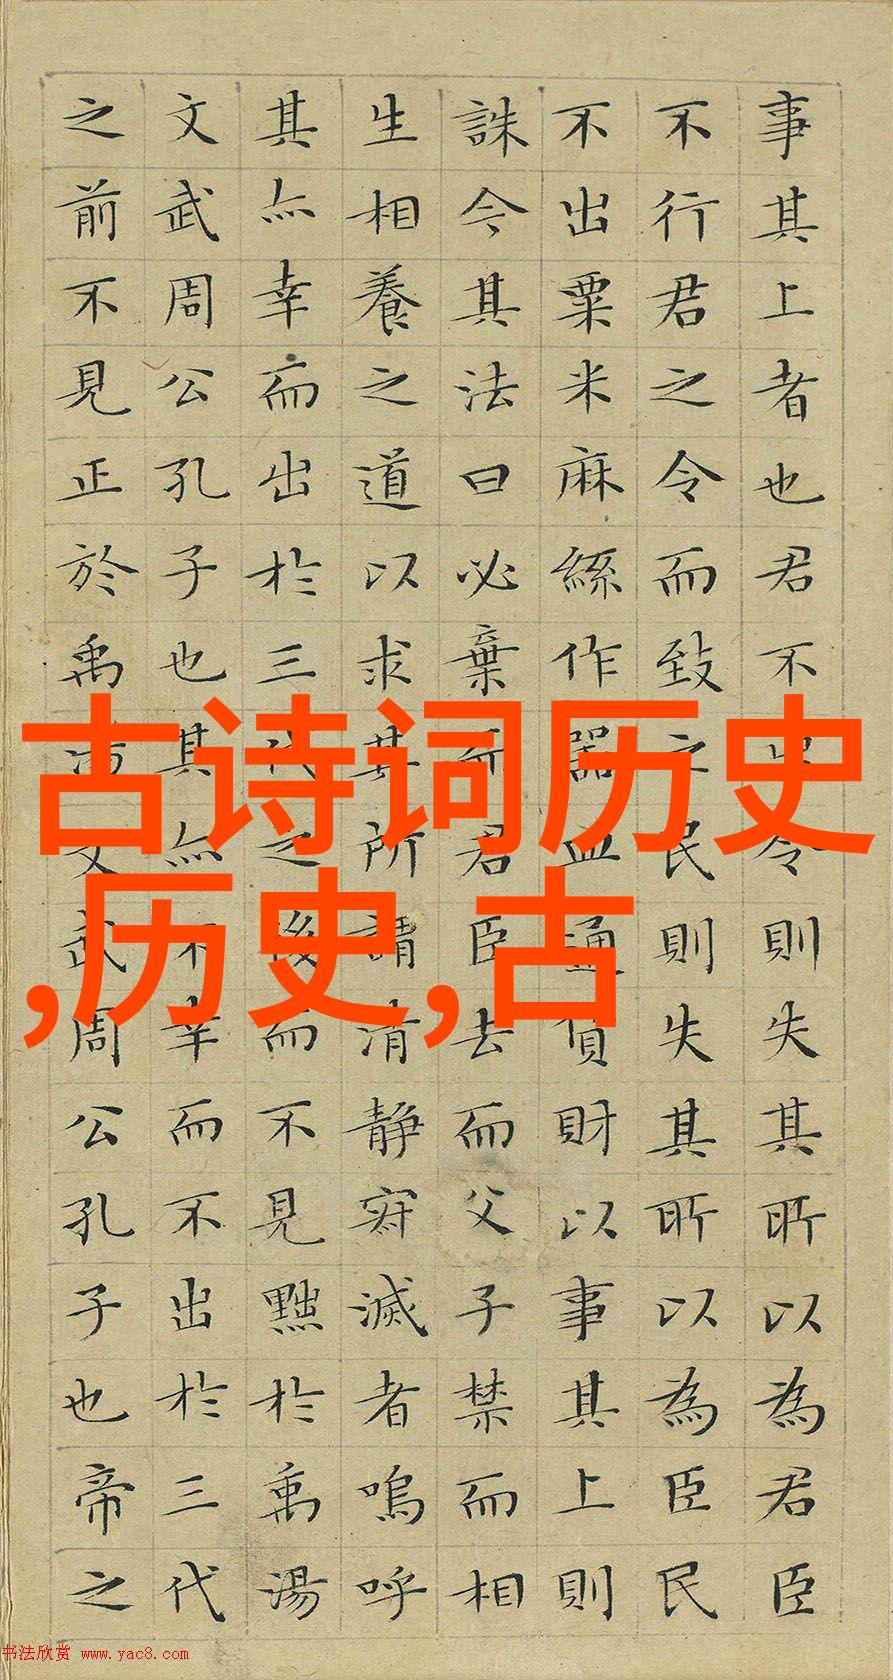 事其上者也君不出令則失其所以為君臣
不行君之令而致之民則失其所以為臣民
不出粟米麻絲作器皿通貨財以事其上則
誅今其法曰必棄而君臣去而父子禁而相
生相養之道以求其所謂清静寂滅者嗚呼
其亦幸而出於三代之後而不見黜於禹湯
文武周公孔子也其亦不幸而不出於三代
之前不見正於禹湯文武周公孔子也帝之
古诗词历史
,历史,古
书法欣赏 www.yac8.com